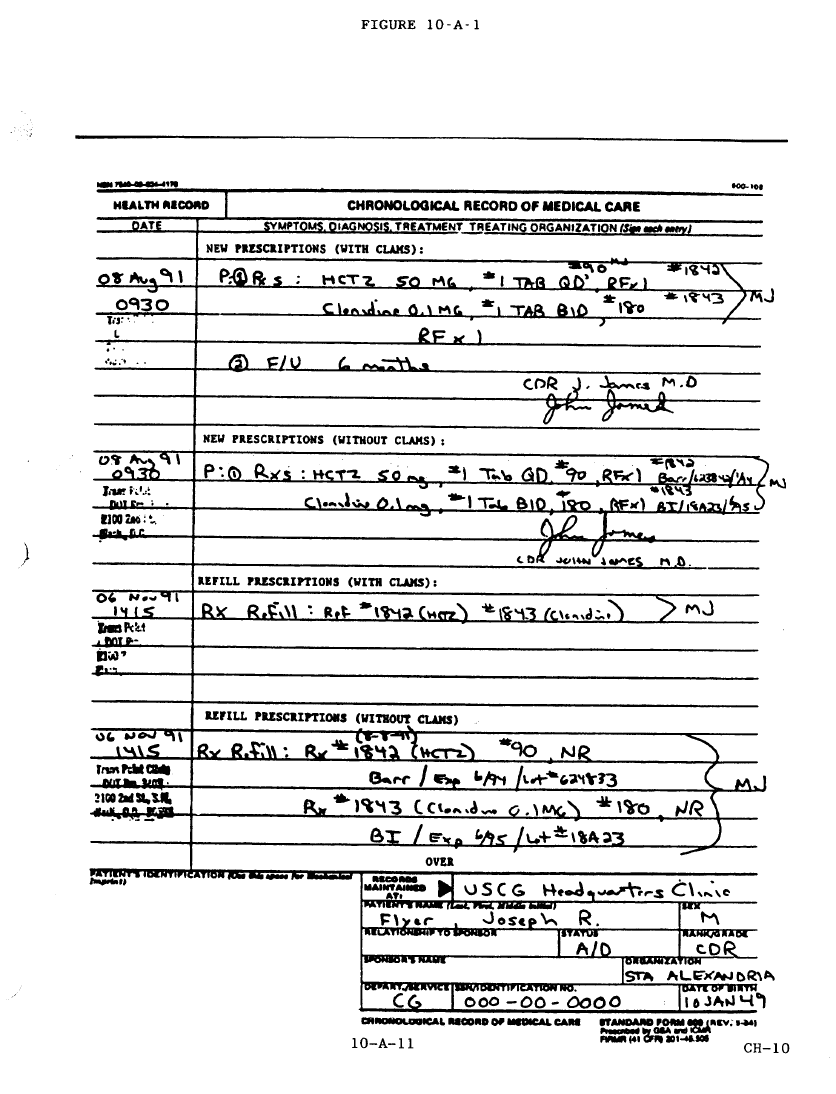 FIGURE 10-A-1
NSN 7540-00-634-4176
600-108
HEALTH RECORD
CHRONOLOGICAL RECORD OF MEDICAL CARE
DATE
SYMPTOMS, DIAGNOSIS, TREATMENT TREATING ORGANIZATION (Sign each entry)
NEW PRESCRIPTIONS (WITH CLAMS):
#90 MJ #1842
08 Aug 91 P: ① Rxs : HCTZ 50 MG, #1 TAB QD, RFx1
0930 Clonidine 0.1 MG, #1 TAB BID, #180 #1843 MJ
RFx1
② F/U 6 months
CDR J. James M.D
John James
NEW PRESCRIPTIONS (WITHOUT CLAMS):
08 Aug 91 #1842
0930 P: ① Rxs : HCTZ 50 mg, #1 Tab QD, #90, RFx1 Barr/
#1843 MJ
Clonidine 0.1mg, #1 Tab BID, #180, RFx1 BI/18A23/6/95
Trans Point
2100 2nd
John James
CDR JOHN JAMES M.D.
REFILL PRESCRIPTIONS (WITH CLAMS):
06 Nov 91
1415 Rx Refill : Ref #1842 (HCTZ) #1843 (Clonidine) MJ
Trans Point
REFILL PRESCRIPTIONS (WITHOUT CLAMS)
06 NOV 91 (8-8-91)
1415 Rx Refill: Rx #1842 (HCTZ) #90, NR
Barr / Exp 6/94 / Lot #624833
Rx #1843 (Clonidine 0.1MG) #180, NR
BI / Exp 6/95 / Lot #18A23
MJ
Trans Point Clinic
2100 2nd St., S.W.
OVER
PATIENT'S IDENTIFICATION (Use this space for Mechanical Imprint)
RECORDS MAINTAINED AT: USCG Headquarters Clinic
PATIENT'S NAME (Last, First, Middle initial) SEX
Flyer, Joseph R. M
RELATIONSHIP TO SPONSOR STATUS RANK/GRADE
A/D CDR
SPONSOR'S NAME ORGANIZATION
STA ALEXANDRIA
DEPART./SERVICE SSN/IDENTIFICATION NO. DATE OF BIRTH
CG 000-00-0000 10 JAN 49
CHRONOLOGICAL RECORD OF MEDICAL CARE
STANDARD FORM 600 (REV. 5-84)
Prescribed by GSA and ICMR
FIRMR (41 CFR) 201-45.505
10-A-11
CH-10